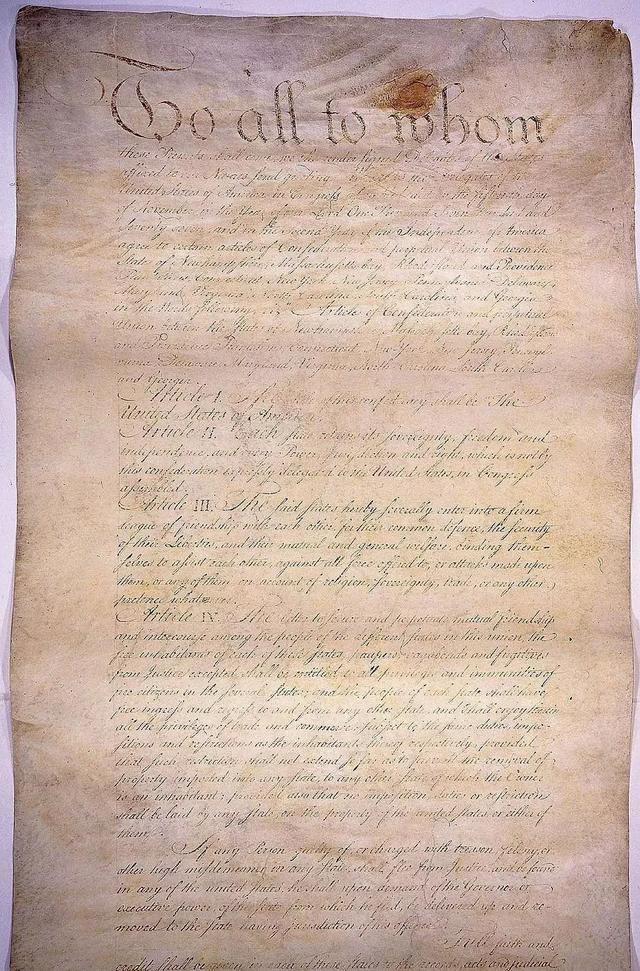 To all to whom
these Presents shall come, we the under signed Delegates of the States
affixed to our Names send greeting. Whereas the Delegates of the
United States of America in Congress assembled did on the fifteenth day
of November in the Year of our Lord One Thousand Seven Hundred and
Seventy seven, and in the Second Year of the Independence of America
agree to certain articles of Confederation and perpetual Union between the
States of Newhampshire, Massachusetts-bay, Rhodeisland and Providence
Plantations, Connecticut, New York, New Jersey, Pennsylvania, Delaware,
Maryland, Virginia, North-Carolina, South-Carolina and Georgia
in the Words following, viz. Articles of Confederation and perpetual
Union between the States of Newhampshire, Massachusetts-bay, Rhodeisland
and Providence Plantations, Connecticut, New-York, New-Jersey, Pennsyl-
vania, Delaware, Maryland, Virginia, North-Carolina, South-Carolina
and Georgia.
Article I. The Stile of this confederacy shall be "The
United States of America."
Article II. Each state retains its sovereignty, freedom and
independence, and every Power, Jurisdiction and right, which is not by
this confederation expressly delegated to the United States, in Congress
assembled.
Article III. The said states hereby severally enter into a firm
league of friendship with each other, for their common defence, the security
of their Liberties, and their mutual and general welfare, binding them-
selves to assist each other, against all force offered to, or attacks made upon
them, or any of them, on account of religion, sovereignty, trade, or any other
pretence whatever.
Article IV. The better to secure and perpetuate mutual friendship
and intercourse among the people of the different states in this union, the
free inhabitants of each of these states, paupers, vagabonds and fugitives
from Justice excepted, shall be entitled to all privileges and immunities of
free citizens in the several states; and the people of each state shall have
free ingress and regress to and from any other state, and shall enjoy therein
all the privileges of trade and commerce, subject to the same duties, impo-
sitions and restrictions as the inhabitants thereof respectively, provided
that such restriction shall not extend so far as to prevent the removal of
property imported into any state, to any other state of which the Owner
is an inhabitant; provided also that no imposition, duties or restriction
shall be laid by any state, on the property of the united states, or either of
them.
If any Person guilty of, or charged with treason, felony, or
other high misdemeanor in any state, shall flee from Justice, and be found
in any of the united states, he shall upon demand of the Governor or
executive power, of the state from which he fled, be delivered up and re-
moved to the state having jurisdiction of his offence.
Full faith and
credit shall be given in each of these states to the records, acts and judicial